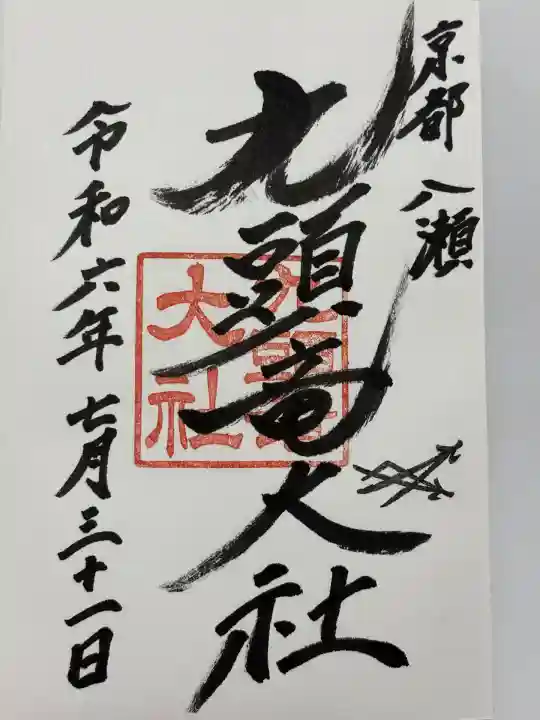 京都 八瀬
九頭竜大社
大社
令和六年 七月三十一日